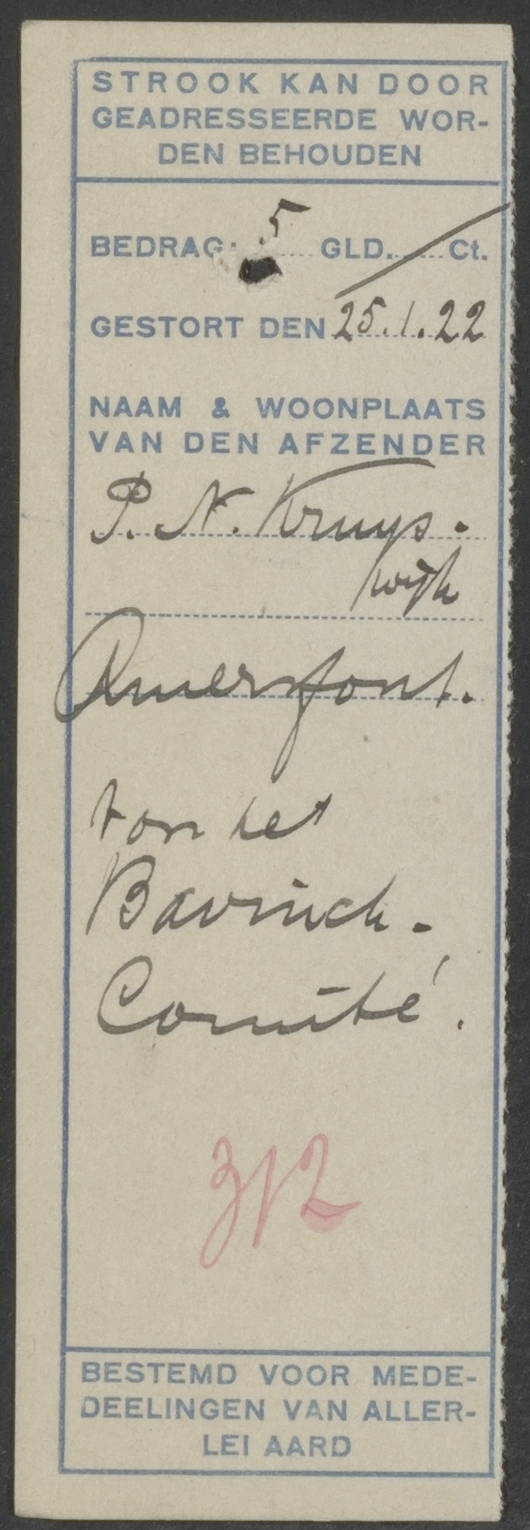 STROOK KAN DOOR
GEADRESSEERDE WOR-
DEN BEHOUDEN
BEDRAG: 5 GLD. / Ct.
GESTORT DEN 25.1.22
NAAM & WOONPLAATS
VAN DEN AFZENDER
P. N. Kruys-
wijk
Amersfoort.
het
Bavinck-
Comité.
312
BESTEMD VOOR MEDE-
DEELINGEN VAN ALLER-
LEI AARD